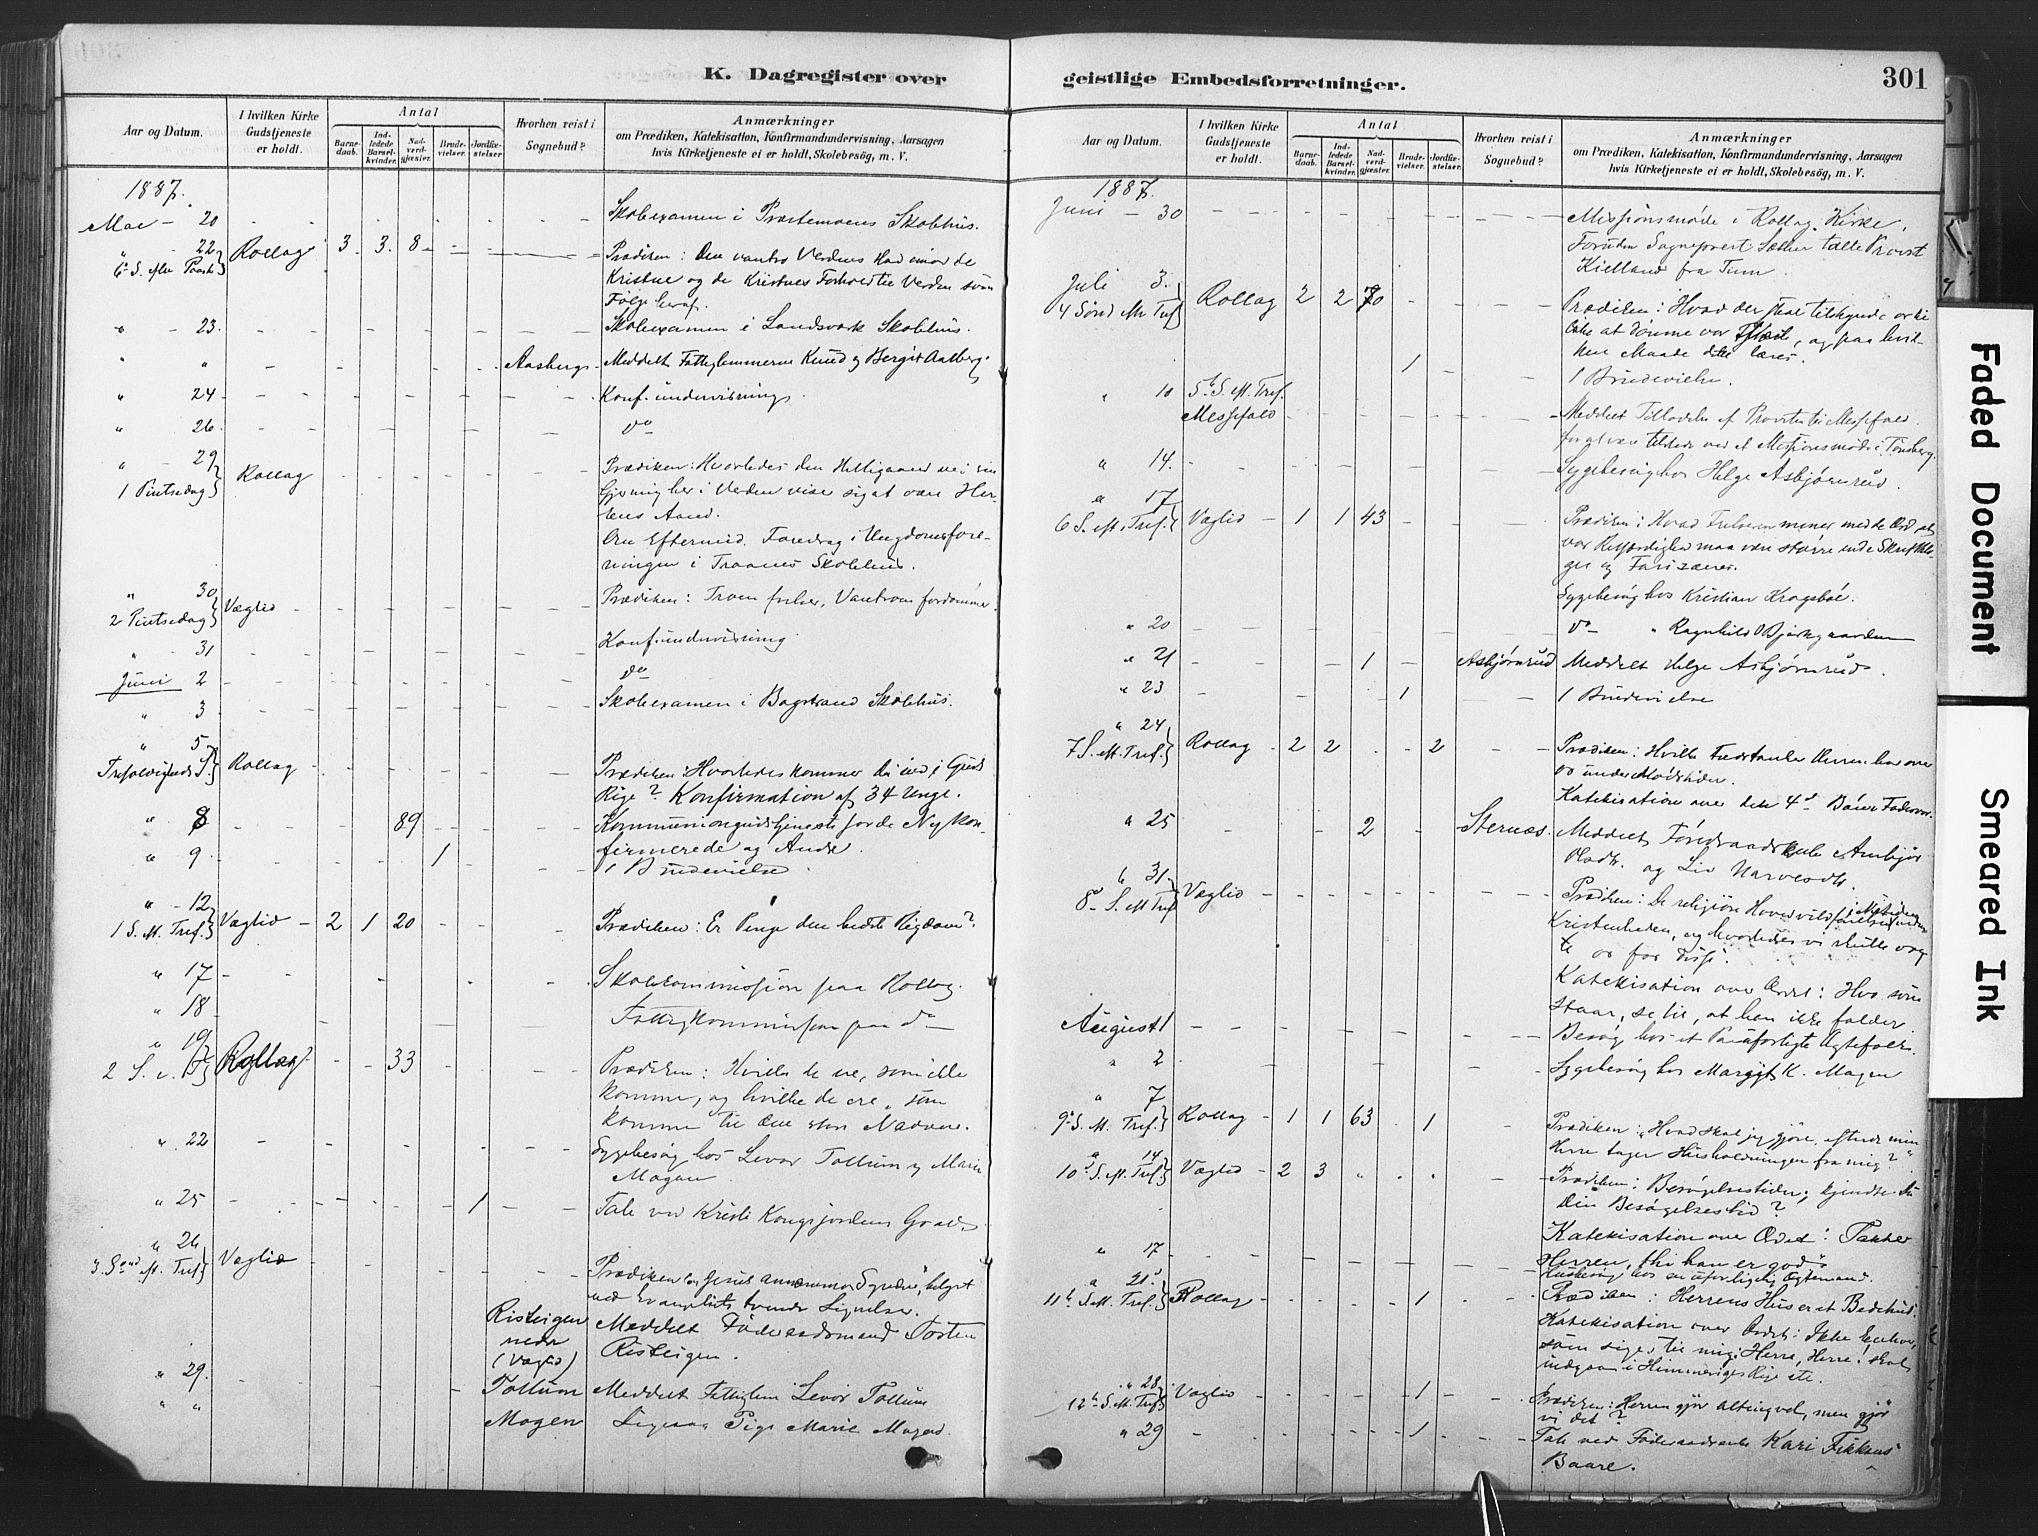 K. Dagregister over
Aar og Datum.
I hvilken Kirke Gudstjeneste er holdt.
Antal
Barne-daab.
Ind-ledede Barsel-kvinder.
Nad-verd-gjester.
Brude-vielser.
Jordfæ-stelser.
Hvorhen reist i Sognebud?
Anmærkninger
om Prædiken, Katekisation, Konfirmandundervisning, Aarsagen
hvis Kirketjeneste ei er holdt, Skolebesög, m. V.
1887.
Mai - 20 Skoleexamen i Præstemoens Skolehus.
" - 22 Rollag 3 3 8 Prædiken: Den vantro Verdens Had imod de
Kristne og de Kristnes Forhold til Verden som
Følge heraf.
" - 23. Skoleexamen i Landsværk Skolehus.
" " Aasberg Meddelt Fattiglemmerne Knud og Bergit Aasberg.
" 24 Konf. undervisning.
" 26. do
" - 29 1 Pintsedag Rollag Prædiken: Hvorledes den Helligaand ved sin
Gjerning her i Verden viser sig at være Her-
rens Aand.
Om Eftermid. Foredrag i Ungdomsfore-
ningen i Traanes Skolehus.
" 30 2 Pintsedag Væglid Prædiken: Troen frelser, Vantroen fordømmer.
" - 31 Konf. undervisning.
Juni 2 do
" 3 Skoleexamen i Bagstrand Skolehus.
" 5 Trefoldigheds S. Rollag Prædiken: Hvorledes kommer du ind i Guds
Rige? Konfirmation af 34 Unge.
" 8 89 Kommuniongudstjeneste for de Nykon-
firmerede og Andre.
" 9 1 1 Brudevielse.
" - 12 1 S. M. Tref. Væglid 2 1 20 Prædiken: Er Penge den bedste Rigdom?
" 17 Skolekommission paa Rollag.
" 18 Fattigkommission paa do
" 19 Rollag 33 Prædiken: Hvilke de ere, som ikke
komme, og hvilke de ere, som
komme til den store Nadvere.
" 22 Sygebesøg hos Levor Tollum og Marie
Mogen.
" 25 1 Tale ved Kristi Kongsjordens Grav.
" 26 Væglid Prædiken
ved Evangeliets Lignelser.
Risteigen nedr (Væglid) Meddelt Føderaadsmand Torsten
Risteigen.
" 29. Tollum Meddelt Fattiglem Levor Tollum
" " Mogen Ligesaa Pige Marie Mogen.
geistlige Embedsforretninger.
301
Aar og Datum.
I hvilken Kirke Gudstjeneste er holdt.
Antal
Barne-daab.
Ind-ledede Barsel-kvinder.
Nad-verd-gjester.
Brude-vielser.
Jordfæ-stelser.
Hvorhen reist i Sognebud?
Anmærkninger
om Prædiken, Katekisation, Konfirmandundervisning, Aarsagen
hvis Kirketjeneste ei er holdt, Skolebesög, m. V.
1887.
Juni - 30 Missionsmøde i Rollag Kirke.
Foruden Sognepræst talte Provst
Kielland fra
Juli 3. 4 Rollag 2 2 Prædiken: Hvad der skal tilskynde os til
ikke at dømme vor Næste, og paa hvil-
ken Maade det læres.
1 1 Brudevielse.
" 10 5te S. M. Tref. Messefald Meddelt Tilladelse af Provsten til Messefald
for at være tilstede ved et Missionsmøde i Tønsberg.
" 14. Sygebesøg hos Helge Asbjørnrud.
" 17 6 S. M. Tref. Væglid 1 1 43 Prædiken: Hvad Frelseren mener med de Ord, at
vor Retfærdighed maa være større end de Skriftklo-
ges og Farisæeres.
Sygebesøg hos Kristian Kragsboe.
" 20 do " Ragnhild Bjørkgaarden
" 21 1 Asbjørnrud Meddelt Helge Asbjørnrud.
" 23 1 1 Brudevielse
" 24 7 S. M. Tref. Rollag 2 2 2 Prædiken: Hvilke Fredstanker Herren har over
os under Nødstider.
Katekisation over den 4de Bøn i Fadervor.
" 25 2 Sternes Meddelt Føderaads Ambjør
og Liv Narvesdt.
" 31 8de S. M. Tref. Væglid Prædiken: De religiøse Hovedvildfarelser
Kristenheden, og hvorledes vi skulle vog-
te os for disse.
Katekisation over Ordet: Hvo som
staar, se til, at han ikke falder.
August 1 Besøg hos et uforligte Ægtefolk.
" 2 Sygebesøg hos Margit K. Mogen
" 7 9de S. M. Tref. Rollag 1 1 63 1 Prædiken: "Hvad skal jeg gjøre, efterdi min
Herre tager Husholdningen fra mig?"
" 14 10de S. M. Tref. Væglid 2 3 Prædiken: Besøgelsestider; kjendte du
din Besøgelsestid?
Katekisation over Ordet: Takker
Herren, thi han er god"
" 17 Husbesøg hos en uforligelig Ægtemand.
" 21 11te S. M. Tref. Rollag 1 Prædiken: Herrens Hus er et Bedehus.
Katekisation over Ordet: Ikke Enhver,
som siger til mig: Herre, Herre! skal
indgaa i Himmeriges Rige etc.
" 28 12te S. M. Tref. Væglid 1 Prædiken: Herren gjør alting vel, men gjør
vi det?
" 29 1 Tale ved Føderaadsenke Kari
Baare.
Faded Document
Smeared Ink